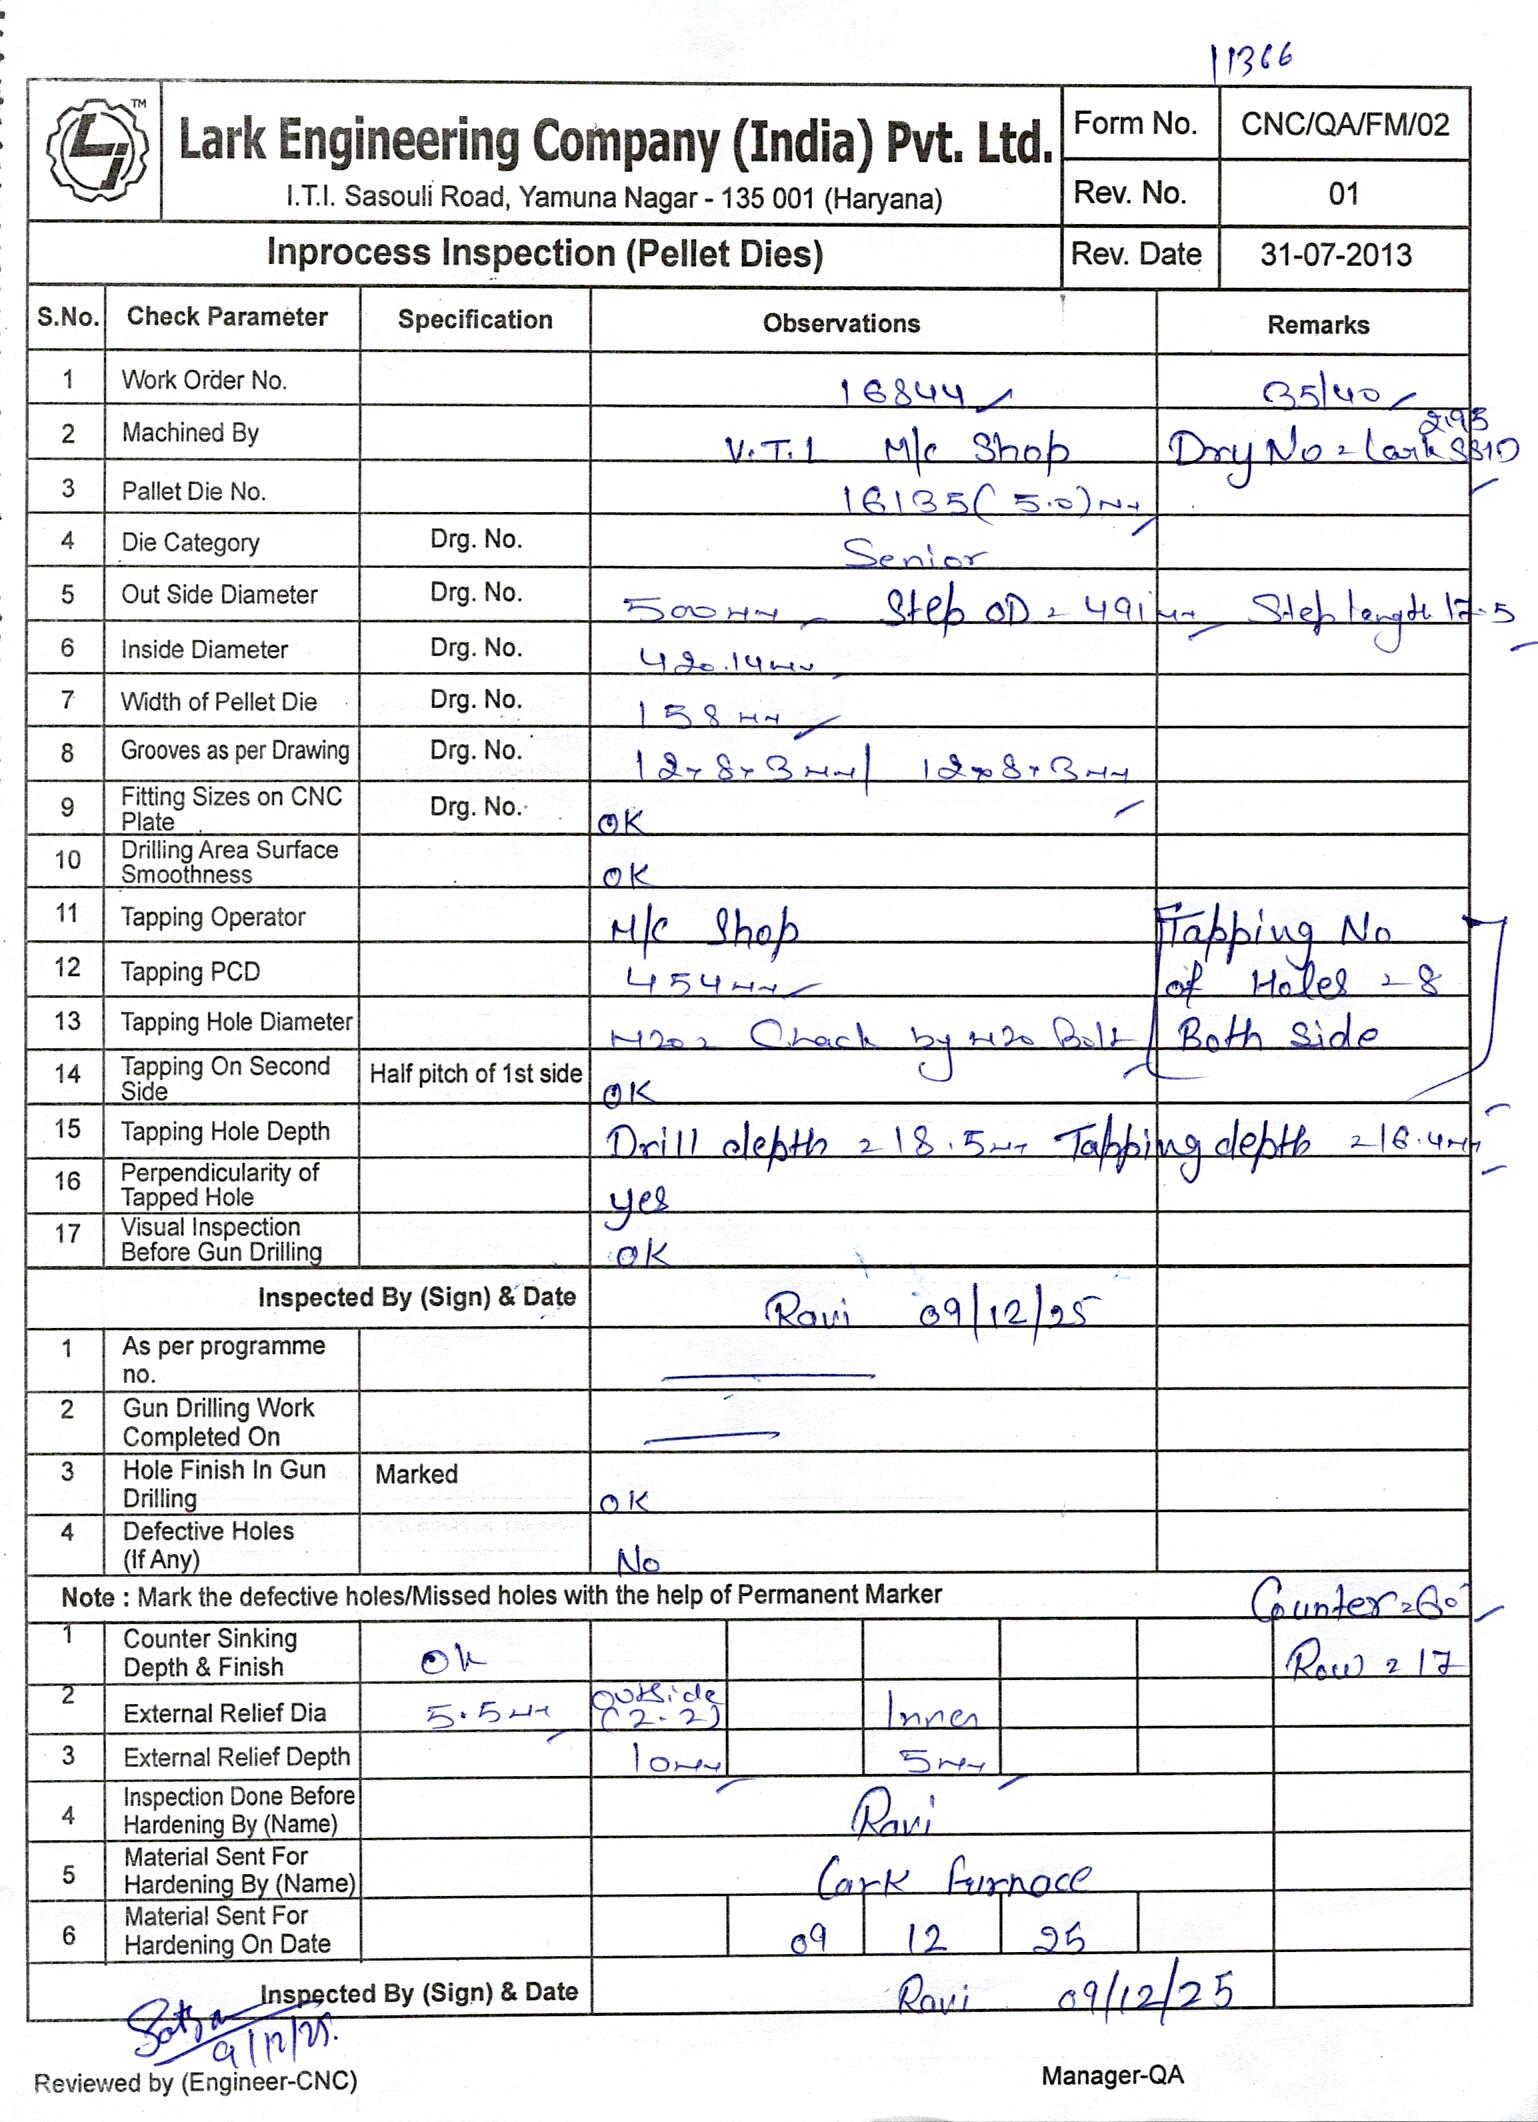 11366
TM
Lark Engineering Company (India) Pvt. Ltd.
I.T.I. Sasouli Road, Yamuna Nagar - 135 001 (Haryana)
Form No. CNC/QA/FM/02
Rev. No. 01
Inprocess Inspection (Pellet Dies) Rev. Date 31-07-2013
S.No. Check Parameter Specification Observations Remarks
1 Work Order No. 16844 35/40
2 Machined By V.T.L M/c Shop Dry No = Lark
3 Pallet Die No. 16135(5.0)mm
4 Die Category Drg. No. Senior
5 Out Side Diameter Drg. No. 500mm Step OD = 491mm Step length 17.5
6 Inside Diameter Drg. No. 420.14mm
7 Width of Pellet Die Drg. No. 158mm
8 Grooves as per Drawing Drg. No. 12x8x3mm / 12x8x3mm
9 Fitting Sizes on CNC Plate Drg. No. OK
10 Drilling Area Surface Smoothness OK
11 Tapping Operator M/C Shop Tapping No
12 Tapping PCD 454mm of Holes = 8
13 Tapping Hole Diameter M20 = Chack by M20 Bolt Both Side
14 Tapping On Second Side Half pitch of 1st side OK
15 Tapping Hole Depth Drill depth = 18.5mm Tapping depth = 16.4mm
16 Perpendicularity of Tapped Hole yes
17 Visual Inspection Before Gun Drilling OK
Inspected By (Sign) & Date Ravi 09/12/25
1 As per programme no.
2 Gun Drilling Work Completed On
3 Hole Finish In Gun Drilling Marked OK
4 Defective Holes (If Any) No
Note : Mark the defective holes/Missed holes with the help of Permanent Marker Counter = 60°
1 Counter Sinking Depth & Finish OK Row = 17
2 External Relief Dia 5.5mm Outside (2.2) Inner
3 External Relief Depth 10mm 5mm
4 Inspection Done Before Hardening By (Name) Ravi
5 Material Sent For Hardening By (Name) Lark Furnace
6 Material Sent For Hardening On Date 09 12 25
Inspected By (Sign) & Date Ravi 09/12/25
9/12/25.
Reviewed by (Engineer-CNC) Manager-QA